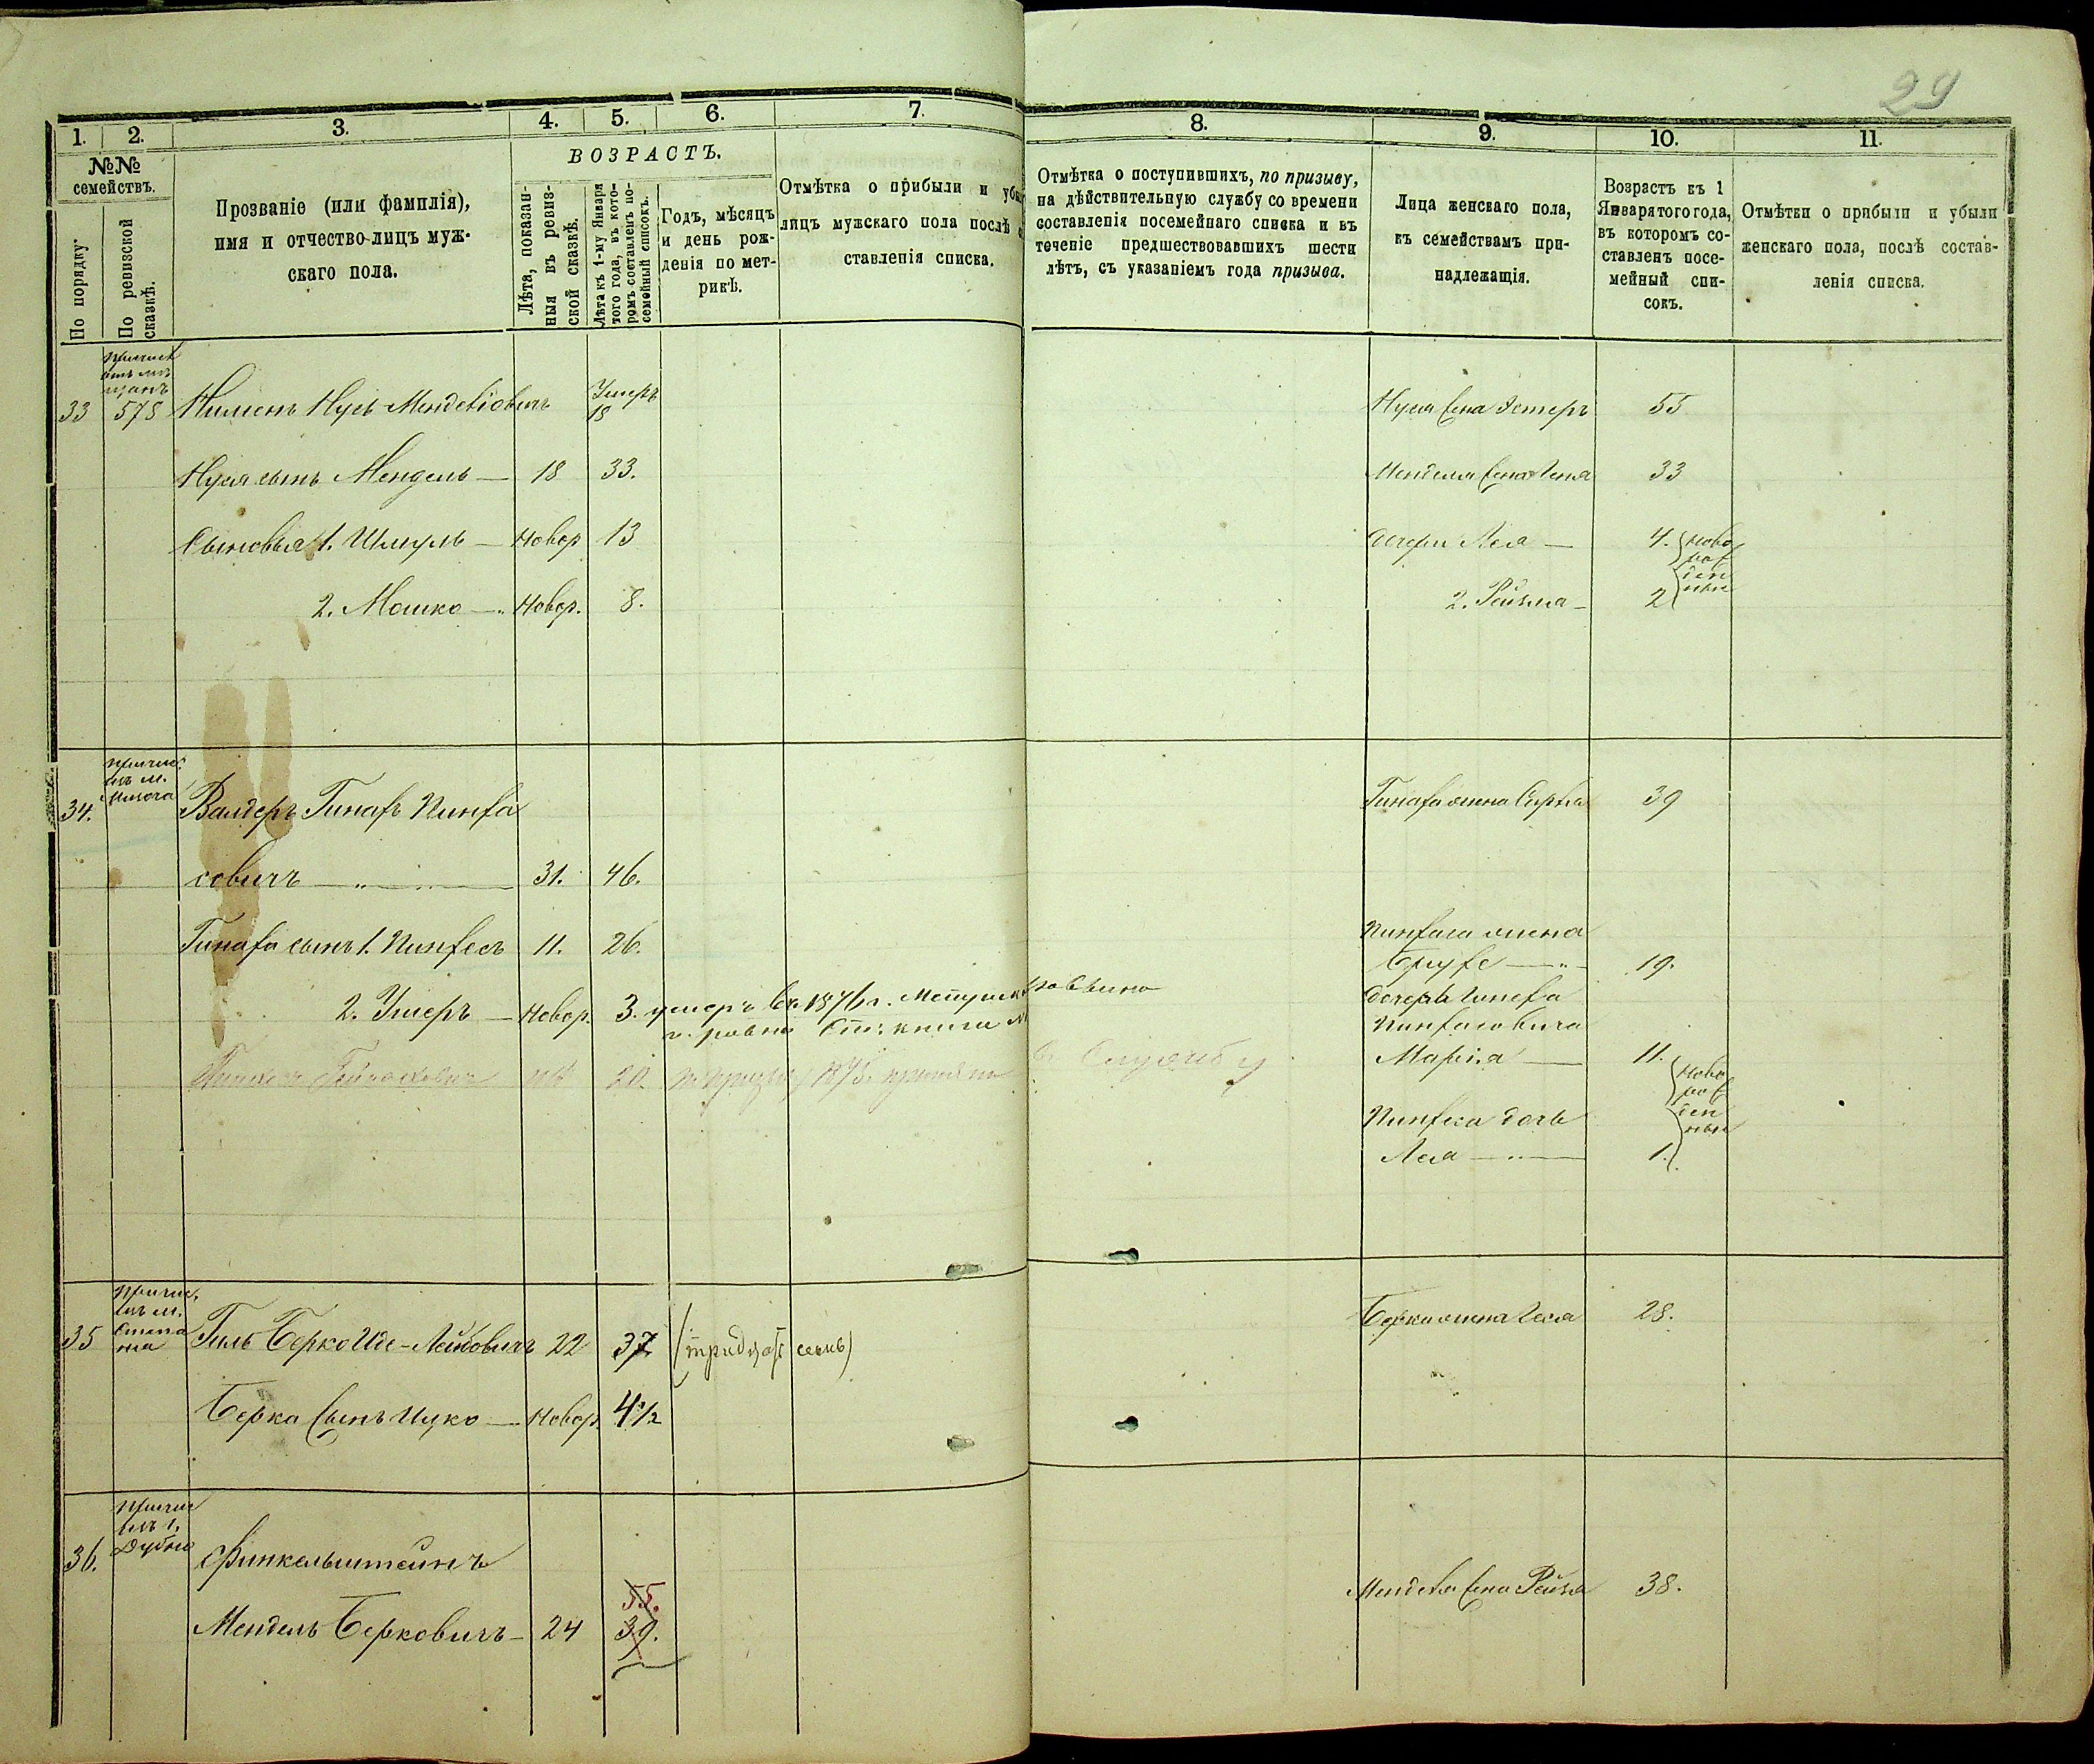 29
1. 2. 3. 4. 5. 6. 7. 8. 9. 10. 11.
№№ семействъ.
По порядку.
По ревизской сказкѣ.
Прозваніе (или фамилія),
имя и отчество лицъ муж-
скаго пола.
ВОЗРАСТЪ.
Лѣта, показан-
ныя въ ревиз-
ской сказкѣ.
Лѣта къ 1-му Января
того года, въ кото-
ромъ составленъ по-
семейный списокъ.
Годъ, мѣсяцъ
и день рож-
денія по мет-
рикѣ.
Отмѣтка о прибыли и убы
лицъ мужскаго пола послѣ с
ставленія списка.
Отмѣтка о поступившихъ, по призыву,
на дѣйствительную службу со времени
составленія посемейнаго списка и въ
теченіе предшествовавшихъ шести
лѣтъ, съ указаніемъ года призыва.
Лица женскаго пола,
къ семействамъ при-
надлежащія.
Возрастъ къ 1
Января того года,
въ которомъ со-
ставленъ посе-
мейный спи-
сокъ.
Отмѣтки о прибыли и убыли
женскаго пола, послѣ состав-
ленія списка.
33 578 Нусь Менделіовичъ Умеръ 18 Нуся жена Эстеръ 55
Нуся сынъ Мендель — 18 33. Менделя жена 33
Сыновья 1. Шмуль — Новор 13 дочери Лея — 4. } ново
рож
ден
ныя
2. Мошко — Новор. 8. 2. Рейзла — 2
34. причис.
изъ м.
Валдеръ Гинахъ Пинха Гинаха жена Сурка 39
совичъ — 31. 46.
Гинаха сынъ 1. Пинхесъ 11. 26. Пинхаса жена
Брухе — 19.
2. Умеръ — Новор. 3. умеръ въ 1876 г. Метрическ
г. ровно книги
дочерь
Пинхасовича
11. } ново
рож
ден
ныя
20. по призыву 187 принятъ въ Службу
Пинхеса дочь
Лея — 1.
35 причис.
изъ м.
Степа
ня
Гиль Берко Иде-Лейбовичъ 22 37 (тридцать семь) Берки жена 28.
Берка сынъ Ицко — Новор. 4½
36. причис
изъ г.
Дубно
Финкельштейнъ
55.
Мендель Берковичъ — 24 39. Менделя жена Рейзя 38.